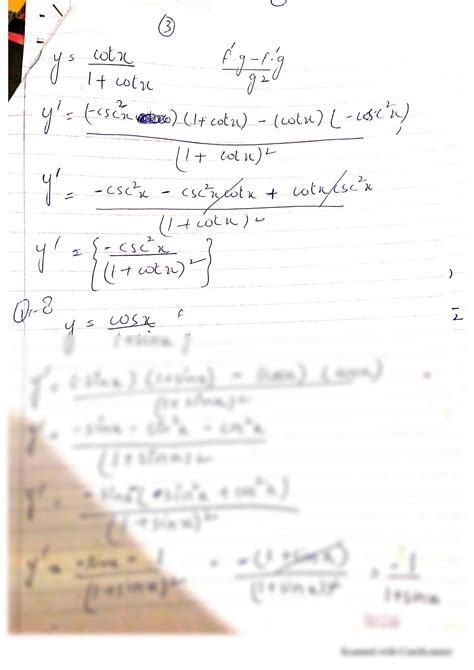 ③
y = cotx / 1 + cotx    f'g - f'g / g2
y' = (-csc²x) (1+cotx) - (cotx) (-cosc²x) / (1 + cotx)²
y' = -csc²x - csc²x cotx + cotx csc²x / (1 + cotx)²
y' = { -csc²x / (1+cotx)² }
Q:-8
y = cosx / 1+sinx
y' = (-sinx) (1+sinx) - (cosx) (cosx) / (1+sinx)²
y' = -sinx - sin²x - cos²x / (1+sinx)²
y' = -sinx - (sin²x + cos²x) / (1+sinx)²
y' = -sinx - 1 / (1+sinx)² = -(1+sinx) / (1+sinx)² = -1 / 1+sinx
Scanned with CamScanner